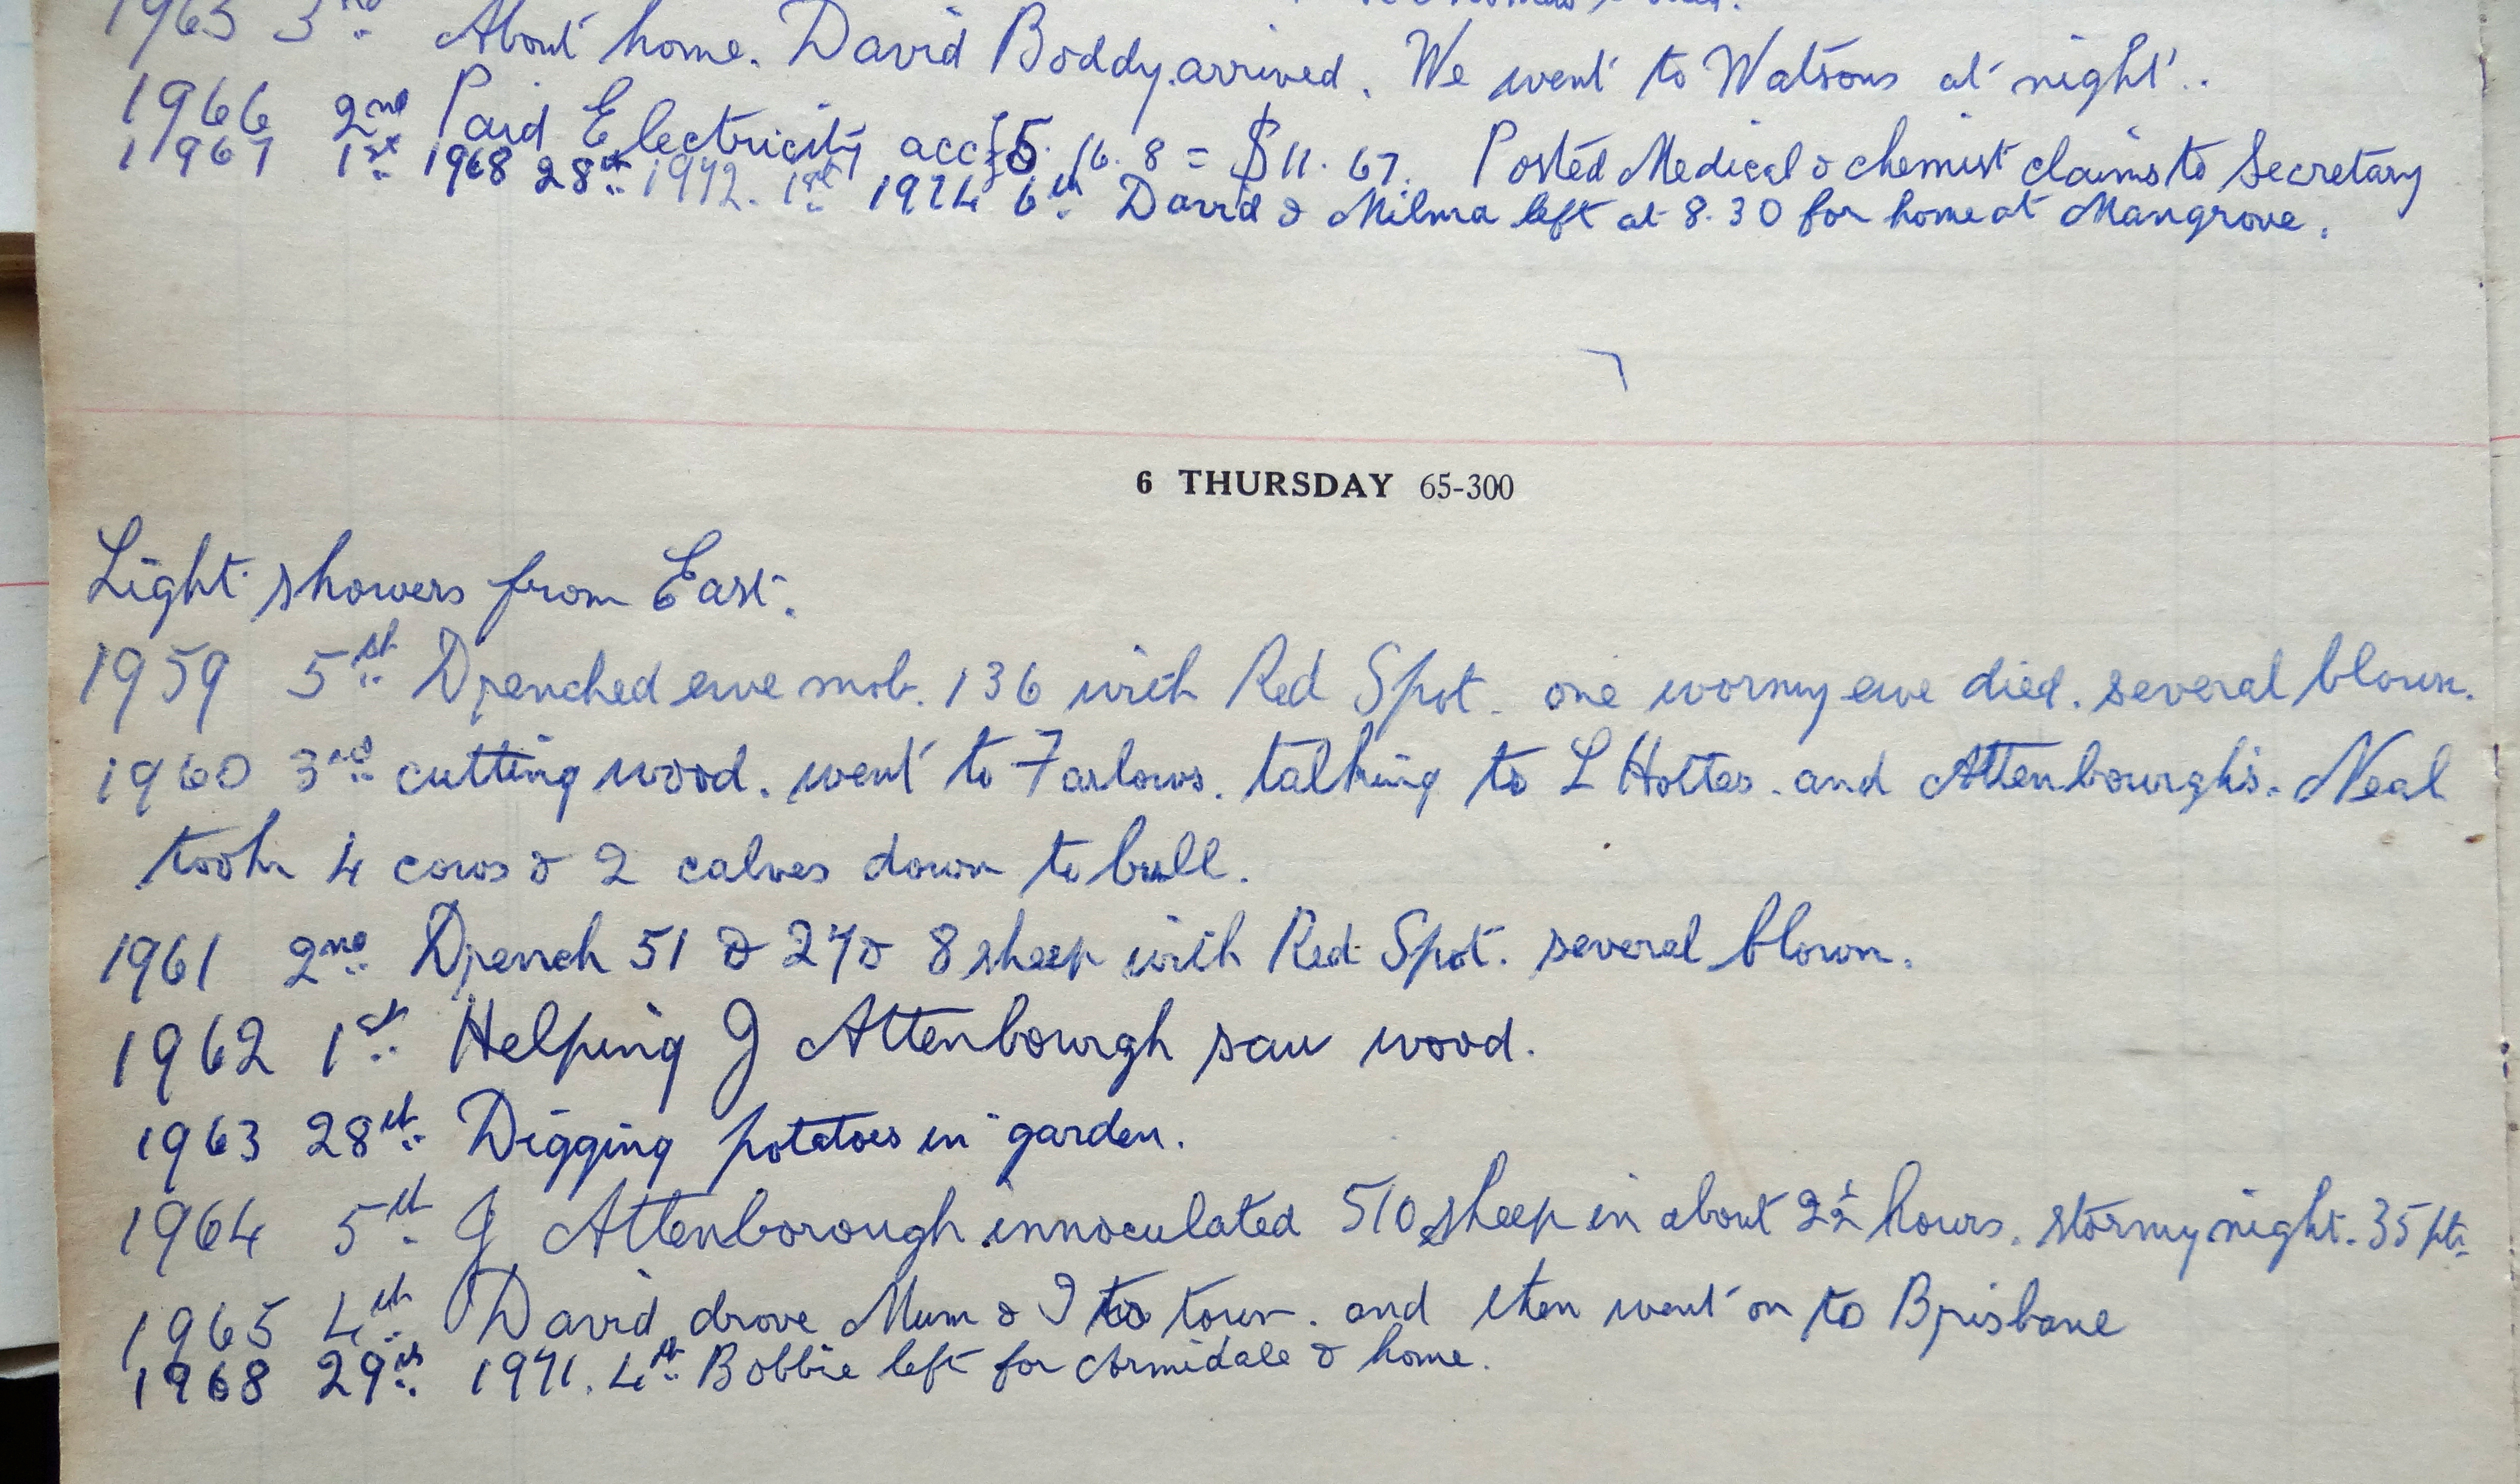 1965 3rd About home. David Boddy arrived. We went to Watsons at night.
1966 2nd Paid Electricity acc £5. 16. 8 = $11. 67. Posted Medical & chemist claims to Secretary
1967 1st 1968 28th 1972. 1st 1974 6th David & Milma left at 8.30 for home at Mangrove.
6 THURSDAY 65-300
Light showers from East.
1959 5th Drenched ewe mob. 136 with Red Spot. one wormy ewe died. several blown.
1960 3rd cutting wood. went to Farlows. talking to L Hottes. and Attenbourghs. Neal
took 4 cows & 2 calves down to bull.
1961 2nd Drench 51 & 27 & 8 sheep with Red Spot. several blown.
1962 1st Helping J Attenbourgh saw wood.
1963 28th Digging potatoes in garden.
1964 5th J Attenborough innoculated 510 sheep in about 2½ hours. stormy night. 35 pts
1965 4th David drove Mum & I to town. and then went on to Brisbane
1968 29th 1971. 4th Bobbie left for Armidale & home.